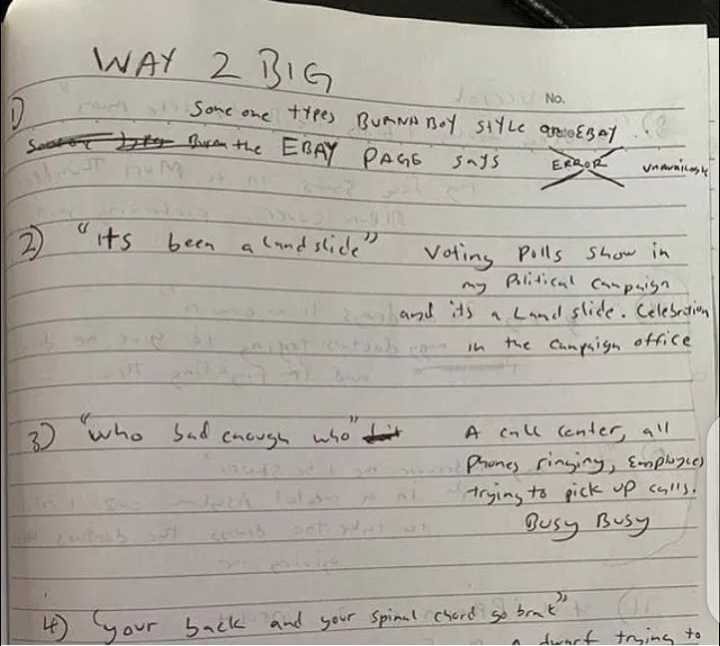 WAY 2 BIG
No.
1) Someone types BURNABOY STYLE on EBAY
the EBAY PAGE says ERROR unavailable
2) "its been a landslide" Voting Polls show in
my Political Campaign
and its a Landslide. Celebration
in the Campaign office
3) "who bad enough who" A call center, all
phones ringing, Employees
trying to pick up calls.
Busy Busy
4) "your back and your spinal chord go brak"
a dwarf trying to